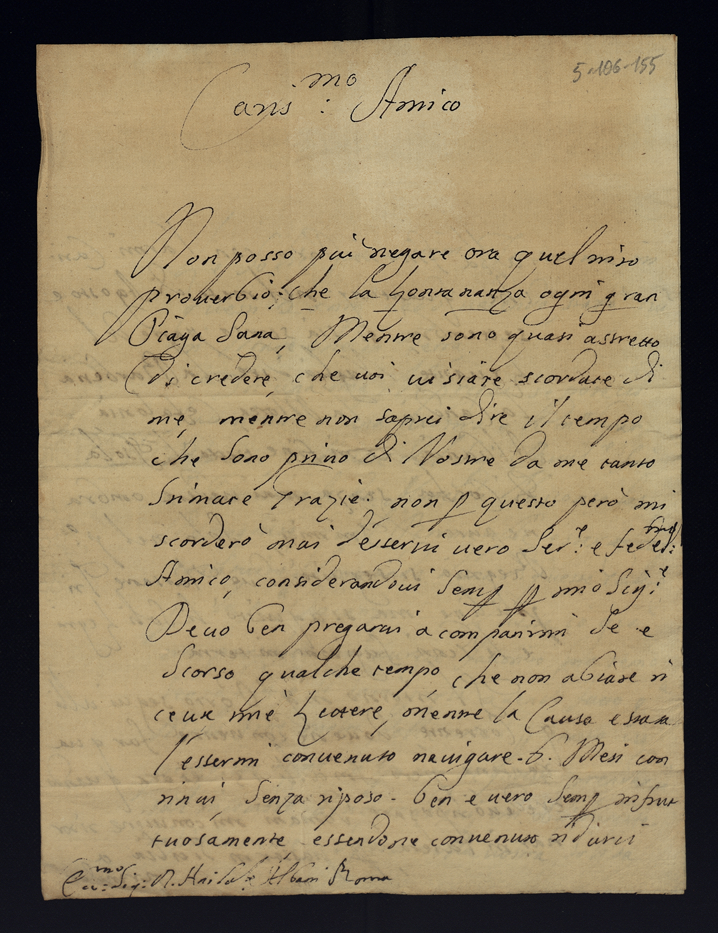 5-106-155
Caris:mo Amico
Non posso piu negare ora quel niso
proverbio, che la Lontananza ogni gran
Piaga Sana, Mentre sono quasi astretto
di credere, che voi vi siate scordate di
me, mentre non saprei dire il tempo
che Sono privo di Vostre da me tanto
Stimate Grazie. non p questo però mi
scorderò mai d'esservi vero Ser:e e fedel:mo
Amico, considerandovi Semp p mio Sig:e
Devo ben pregarvi a compatirmi Se e
Scorso qualche tempo che non abiate ri
ceute mie Lettere, mentre la Causa e stata
l'essermi convenuto navigare 6. Mesi con
tinui Senza riposo. ben e vero Semp infrut
tuosamente essendone convenuto ridurci
Sig: Albani Roma